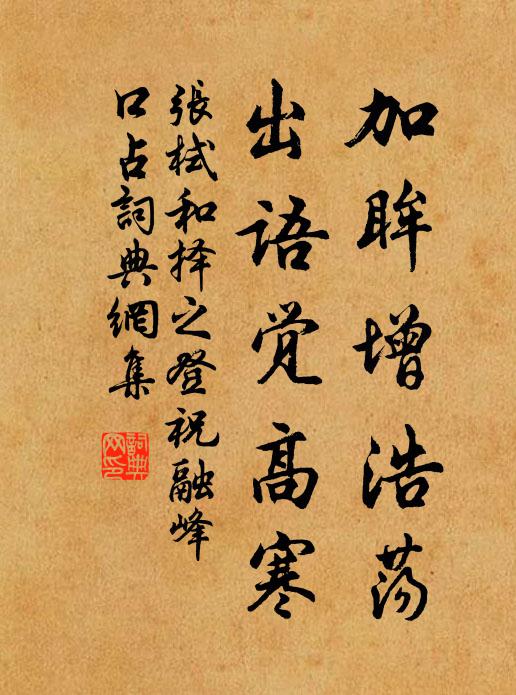 加眸增浩荡
出语觉高寒
張栻和择之登祝融峰
口占詞典網集
詞典網印